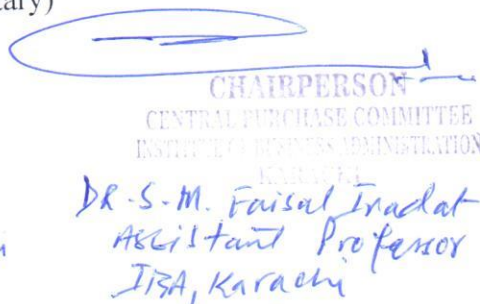 tary)
CHAIRPERSON
CENTRAL PURCHASE COMMITTEE
INSTITUTE OF BUSINESS ADMINISTRATION
KARACHI
DR. S. M. Faisal Iradat
Assistant Professor
IBA, Karachi